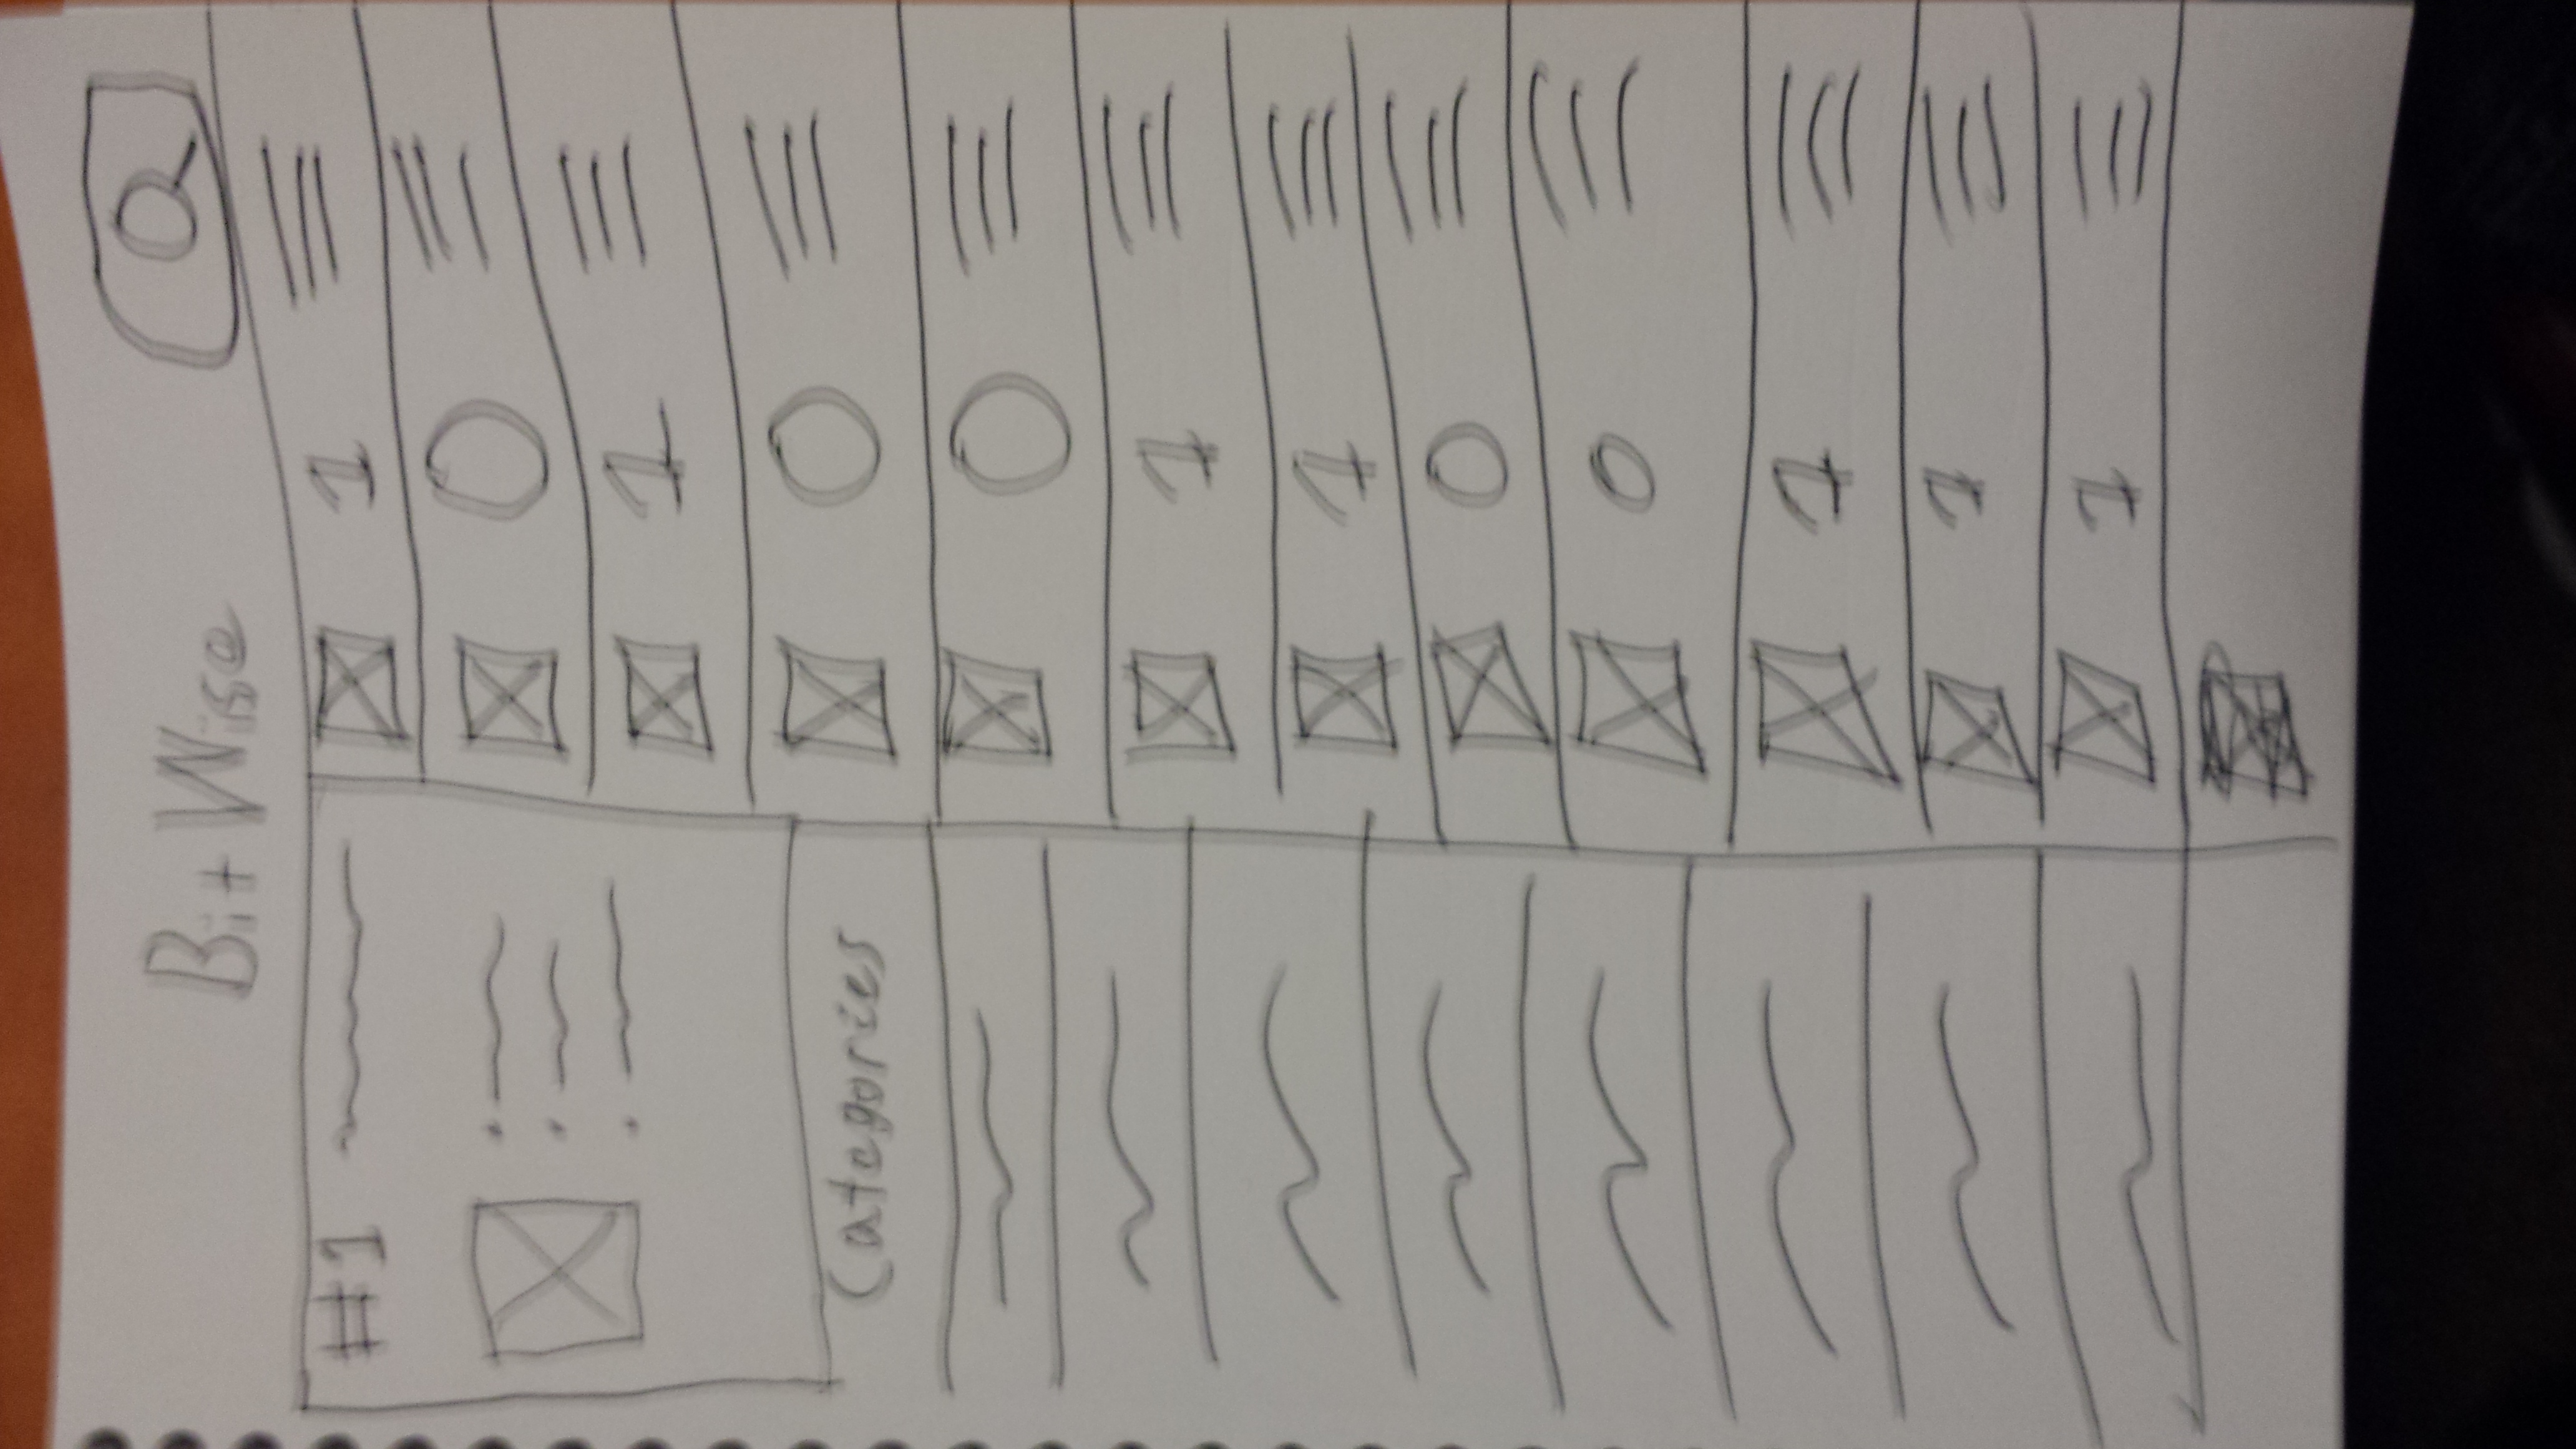 Bit Wise
#1
Categories
1
0
1
0
0
1
1
0
0
1
1
1